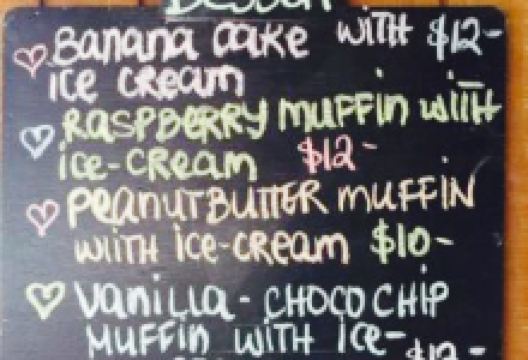 Banana Cake with $12-
ice cream
Raspberry muffin wiith
ice-cream $12-
Peanutbutter muffin
wiith ice-cream $10-
Vanilla - choco chip
muffin with ice-